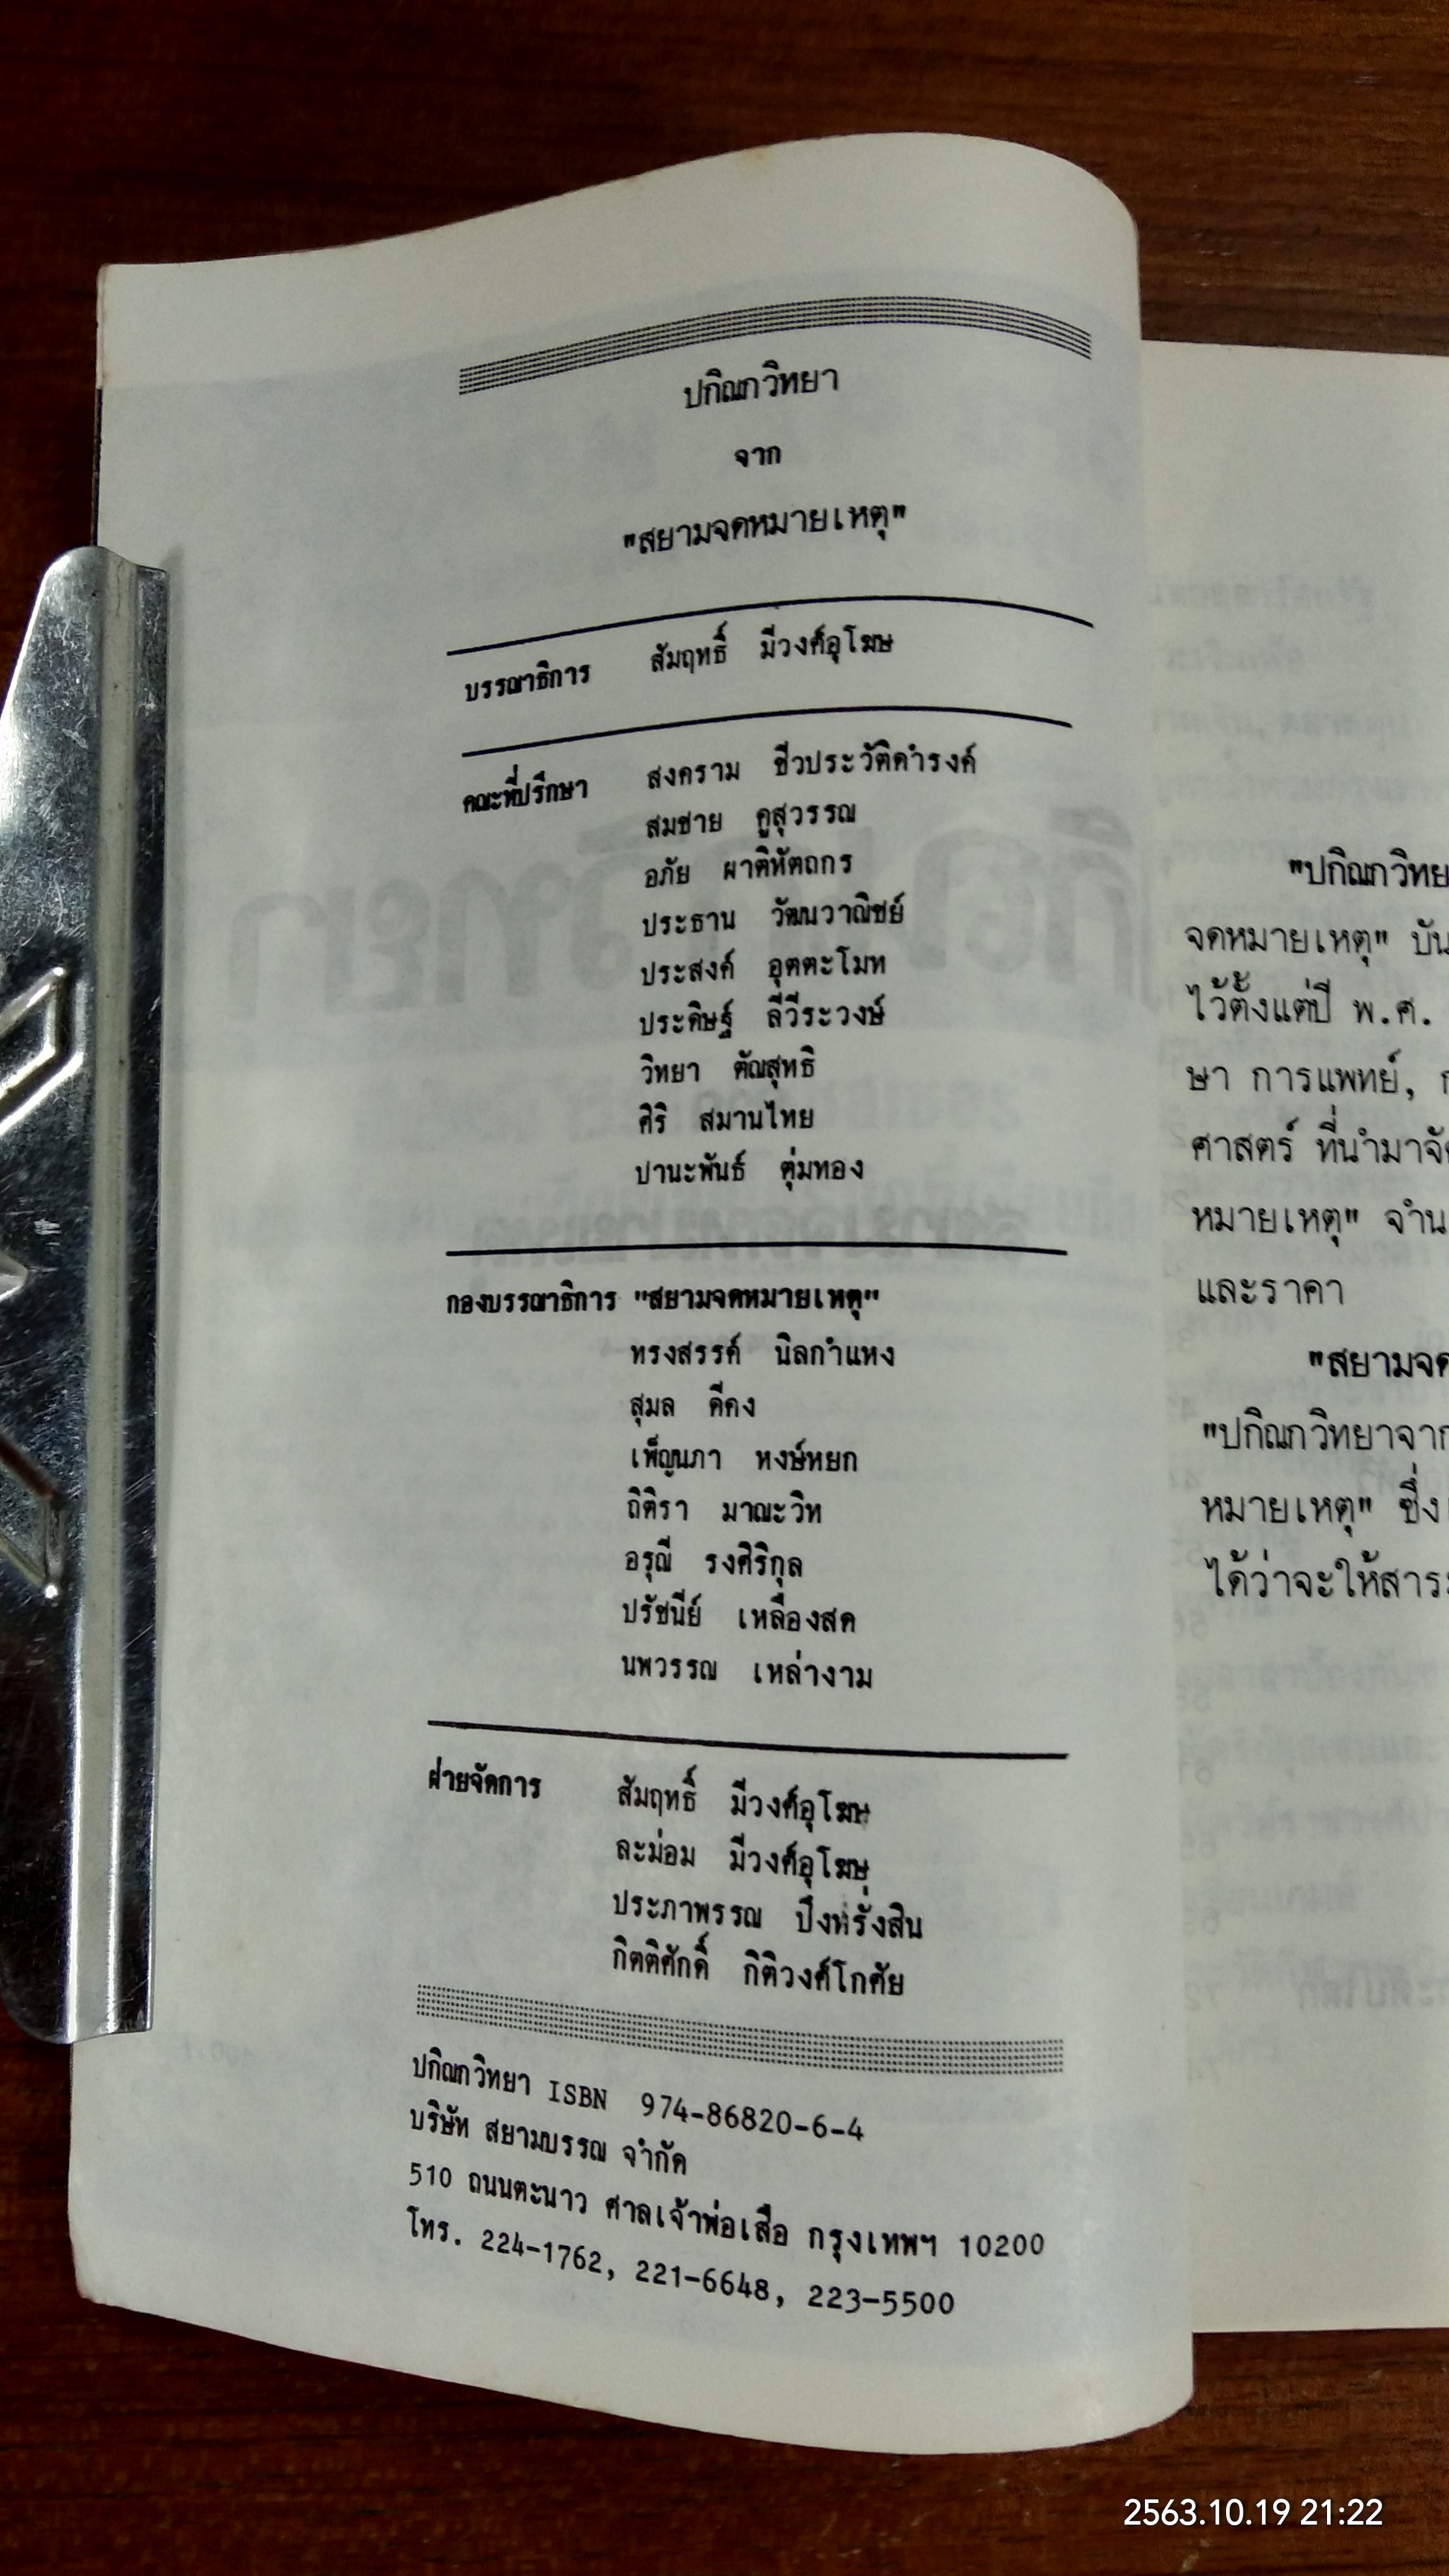 ปกิณกวิทยา
จาก
"สยามจดหมายเหตุ"
บรรณาธิการ สัมฤทธิ์ มีวงศ์อุโฆษ
คณะที่ปรึกษา สงคราม ชีวประวัติดำรงค์
สมชาย คูสุวรรณ
อภัย ผาติหัตถกร
ประธาน วัฒนวาณิชย์
ประสงค์ อุตตะโมท
ประดิษฐ์ ลีวีระวงษ์
วิทยา ตัณสุทธิ
ศิริ สมานไทย
ปานะพันธ์ ตุ่มทอง
กองบรรณาธิการ "สยามจดหมายเหตุ"
ทรงสรรค์ นิลกำแหง
สุมล ดีคง
เพ็ญนภา หงษ์หยก
ถิติรา มาณะวิท
อรุณี รงศิริกุล
ปรัชนีย์ เหลืองสด
นพวรรณ เหล่างาม
ฝ่ายจัดการ สัมฤทธิ์ มีวงศ์อุโฆษ
ละม่อม มีวงศ์อุโฆษ
ประภาพรรณ ปึงหรั่งสิน
กิตติศักดิ์ กิติวงศ์โกศัย
ปกิณกวิทยา ISBN 974-86820-6-4
บริษัท สยามบรรณ จำกัด
510 ถนนตะนาว ศาลเจ้าพ่อเสือ กรุงเทพฯ 10200
โทร. 224-1762, 221-6648, 223-5500
"ปกิณกวิทย
จดหมายเหตุ" บัน
ไว้ตั้งแต่ปี พ.ศ.
ษา การแพทย์,
ศาสตร์ ที่นำมาจัด
หมายเหตุ" จำน
และราคา
"สยามจด
"ปกิณกวิทยาจาก
หมายเหตุ" ซึ่ง
ได้ว่าจะให้สาระ
2563.10.19 21:22